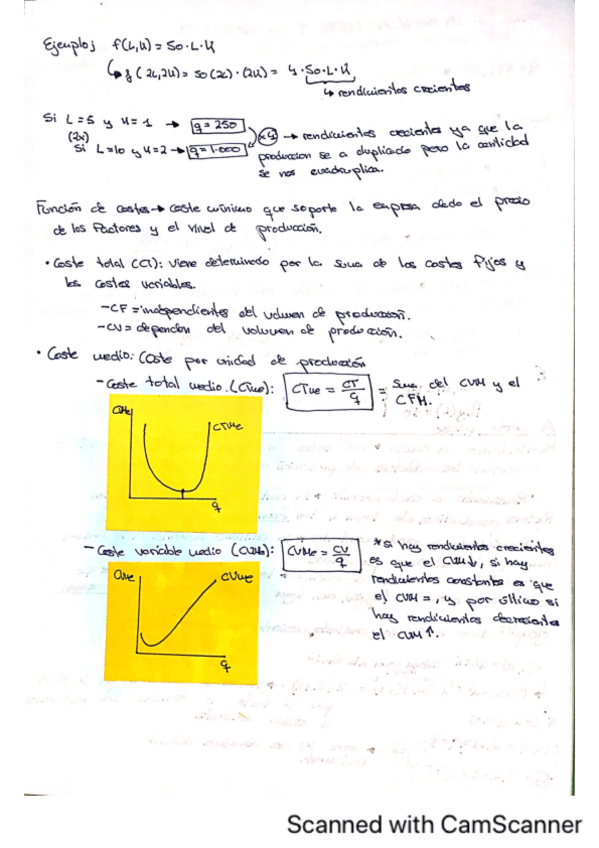 Ejemplo; f(L,K) = 50·L·K
↳ f(2L,2K) = 50(2L)·(2K) = 4·50·L·K
↳ rendimientos crecientes
Si L=5 y K=1 → q=250
(2x)
Si L=10 y K=2 → q=1.000
x4 → rendimientos crecientes ya que la
produccion se a duplicado pero la cantidad
se nos cuadruplica.
Función de costes → coste mínimo que soporta la empresa dado el precio
de los factores y el nivel de producción.
• Coste total (CT): viene determinado por la suma de los costes fijos y
los costes variables.
- CF = independientes del volumen de producción.
- CV = dependen del volumen de producción.
• Coste medio: Coste por unidad de producción
- Coste total medio. (CTMe): CTMe = CT/q = Suma del CVM y el
CFM.
CMe
CTMe
q
- Coste variable medio (CVMe): CVMe = CV/q
* Si hay rendimientos crecientes
es que el CVM↓, si hay
rendimientos constantes es que
el CVM =, y por último si
hay rendimientos decrecientes
el CVM ↑.
CMe
CVMe
q
Scanned with CamScanner